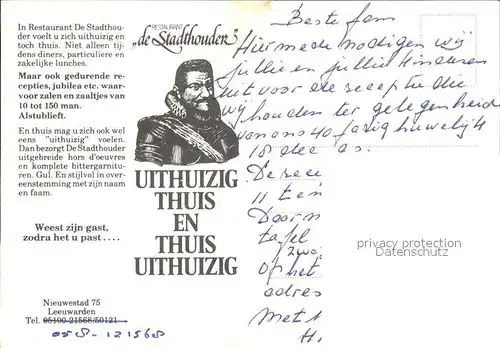 In Restaurant De Stadthou-
der voelt u zich uithuizig en
toch thuis. Niet alleen tij-
dens diners, particuliere en
zakelijke lunches.
Maar ook gedurende re-
cepties, jubilea etc. waar-
voor zalen en zaaltjes van
10 tot 150 man.
Alstublieft.
En thuis mag u zich ook wel
eens "uithuizig" voelen.
Dan bezorgt De Stadthouder
uitgebreide hors d'oeuvres
en komplete bittergarnitu-
ren. Gul. En stijlvol in over-
eenstemming met zijn naam
en faam.
Weest zijn gast,
zodra het u past....
Nieuwestad 75
Leeuwarden
Tel. 05100-21568/50121
058-121568
RESTAURANT
„de Stadthouder”
UITHUIZIG
THUIS
EN
THUIS
UITHUIZIG
Beste fam
Hiermede nodigen wij
jullie en jullie kinderen
uit voor de receptie die
wij houden ter gelegenheid
van ons 40 jarig huwelijk
18 dec as.
De rece
11 ten
Door n
tafel
Op het
adres
Met
H.
privacy protection
Datenschutz